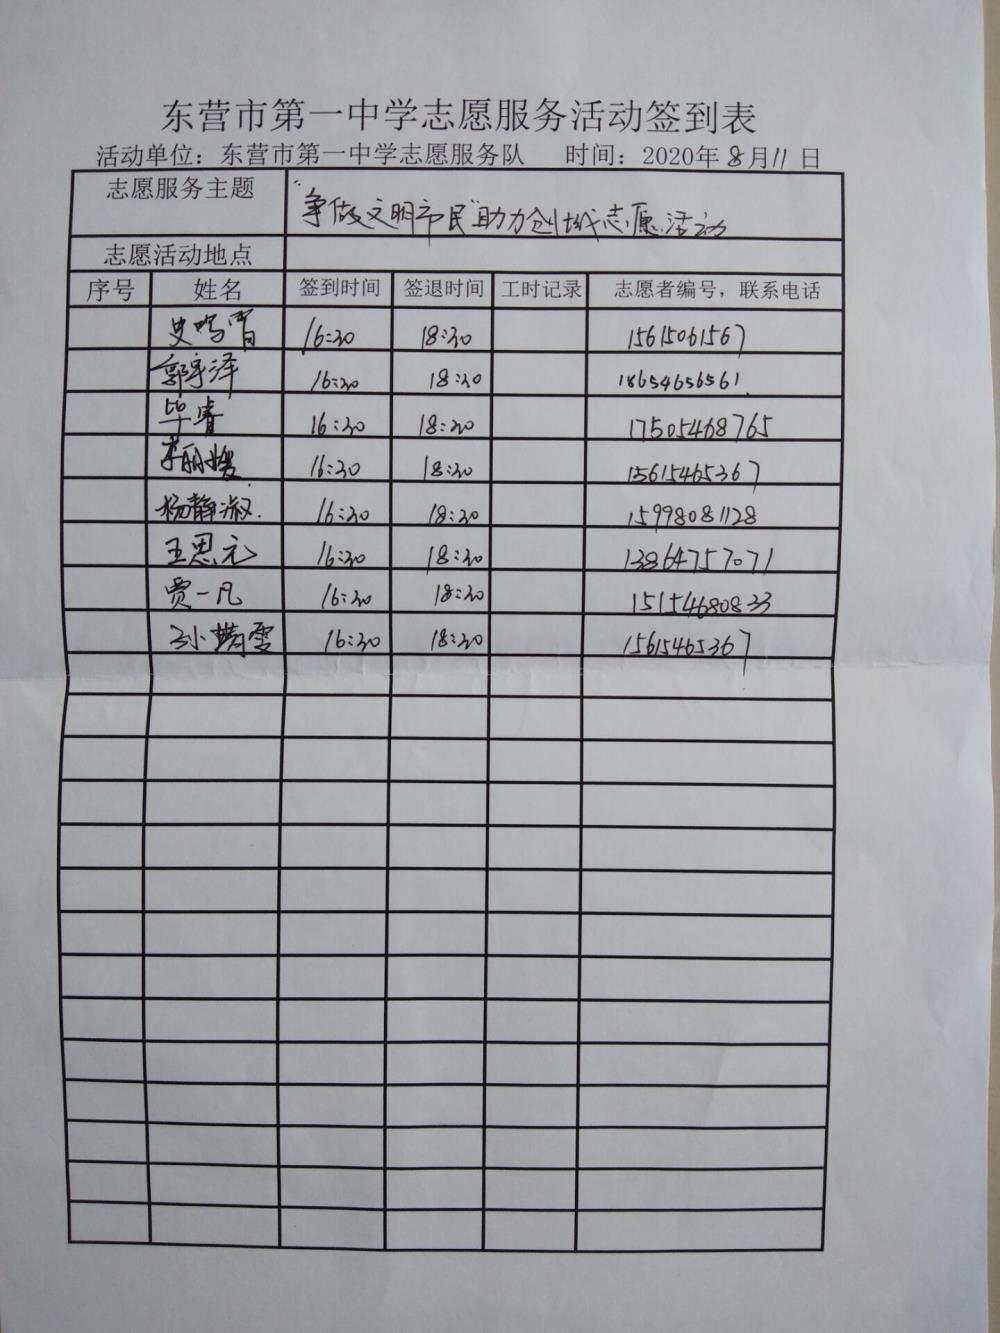 东营市第一中学志愿服务活动签到表
活动单位：东营市第一中学志愿服务队 时间：2020年8月11日
志愿服务主题 “争做文明市民”助力创城志愿活动
志愿活动地点
序号 姓名 签到时间 签退时间 工时记录 志愿者编号，联系电话
史鸣 16:30 18:30 15615061567
郭宇泽 16:30 18:30 18654656561
毕睿 16:30 18:30 17505468765
李丽媛 16:30 18:30 15615465367
杨静淑 16:30 18:30 15998081128
王思元 16:30 18:30 13864757071
贾一凡 16:30 18:30 15154680833
孙雪 16:30 18:30 15615465367